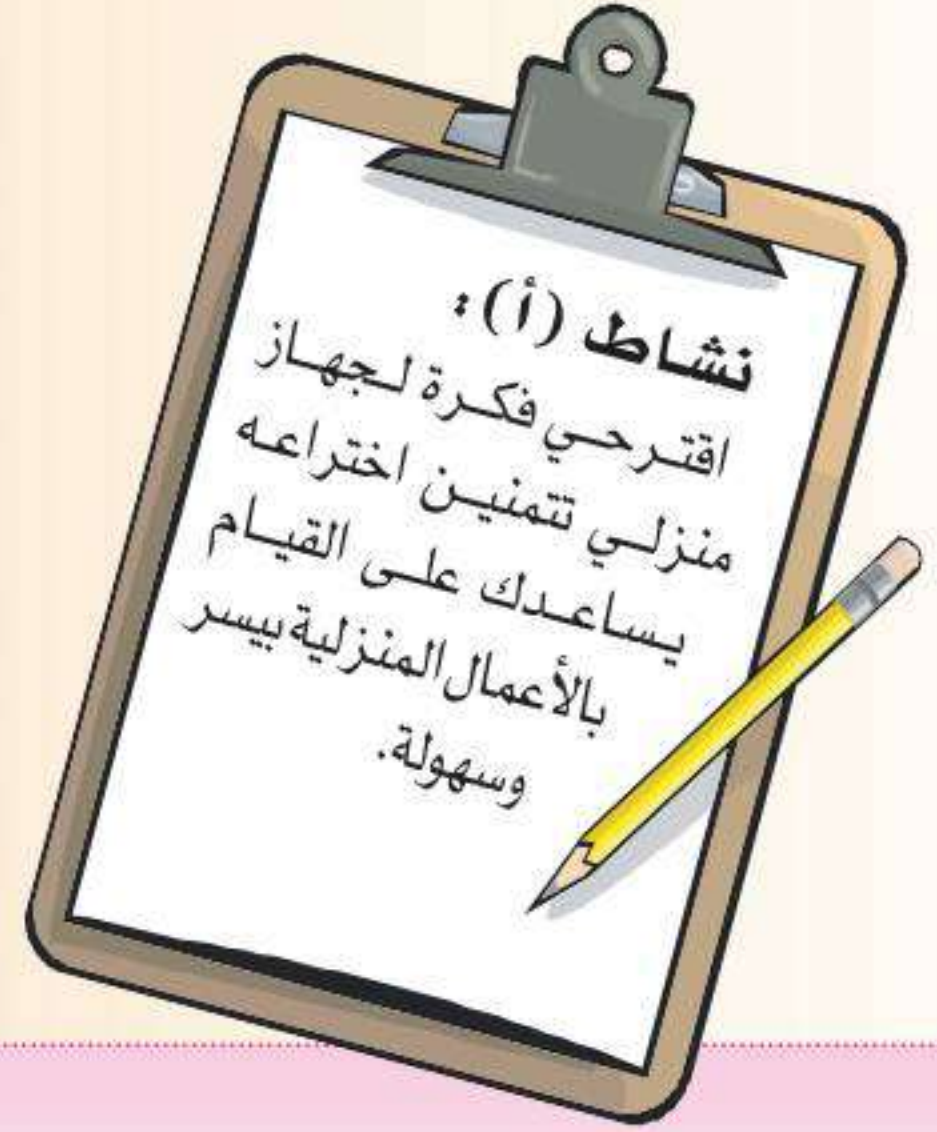 نشاط (أ):
اقترحي فكرة لجهاز
منزلي تتمنين اختراعه
يساعدك على القيام
بالأعمال المنزلية بيسر
وسهولة.